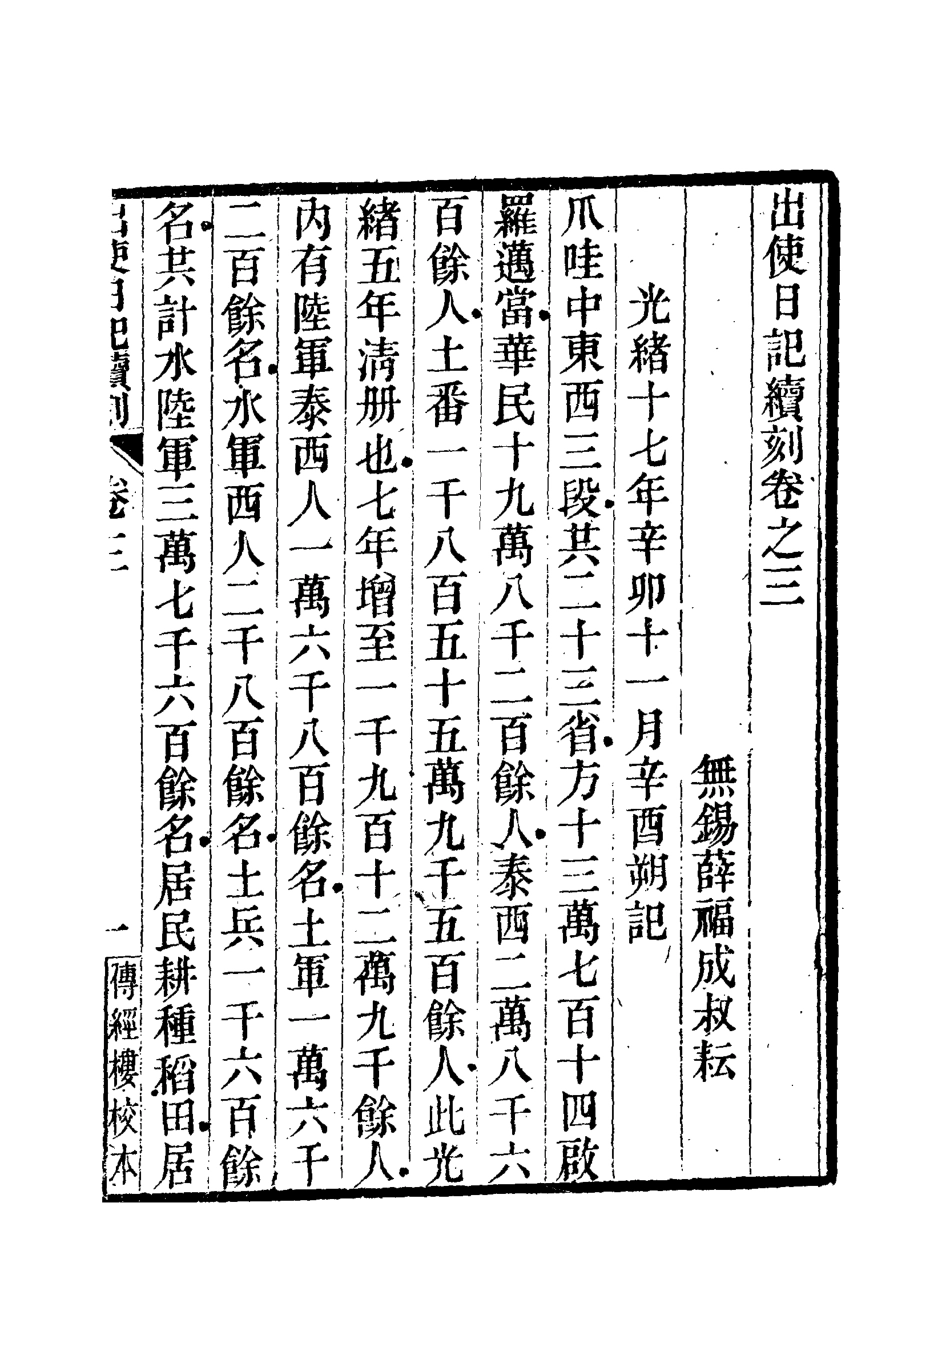 出使日記續刻卷之三
無錫薛福成叔耘
光緒十七年辛卯十一月辛酉朔記
爪哇中東西三段共二十三省方十三萬七百十四啟
羅邁當華民十九萬八千二百餘人泰西二萬八千六
百餘人土番一千八百五十五萬九千五百餘人此光
緒五年清册也七年增至一千九百十二萬九千餘人
內有陸軍泰西人一萬六千八百餘名土軍一萬六千
二百餘名水軍西人二千八百餘名土兵一千六百餘
名共計水陸軍三萬七千六百餘名居民耕種稻田居
出使日記續刻 卷三 一 傳經樓校本